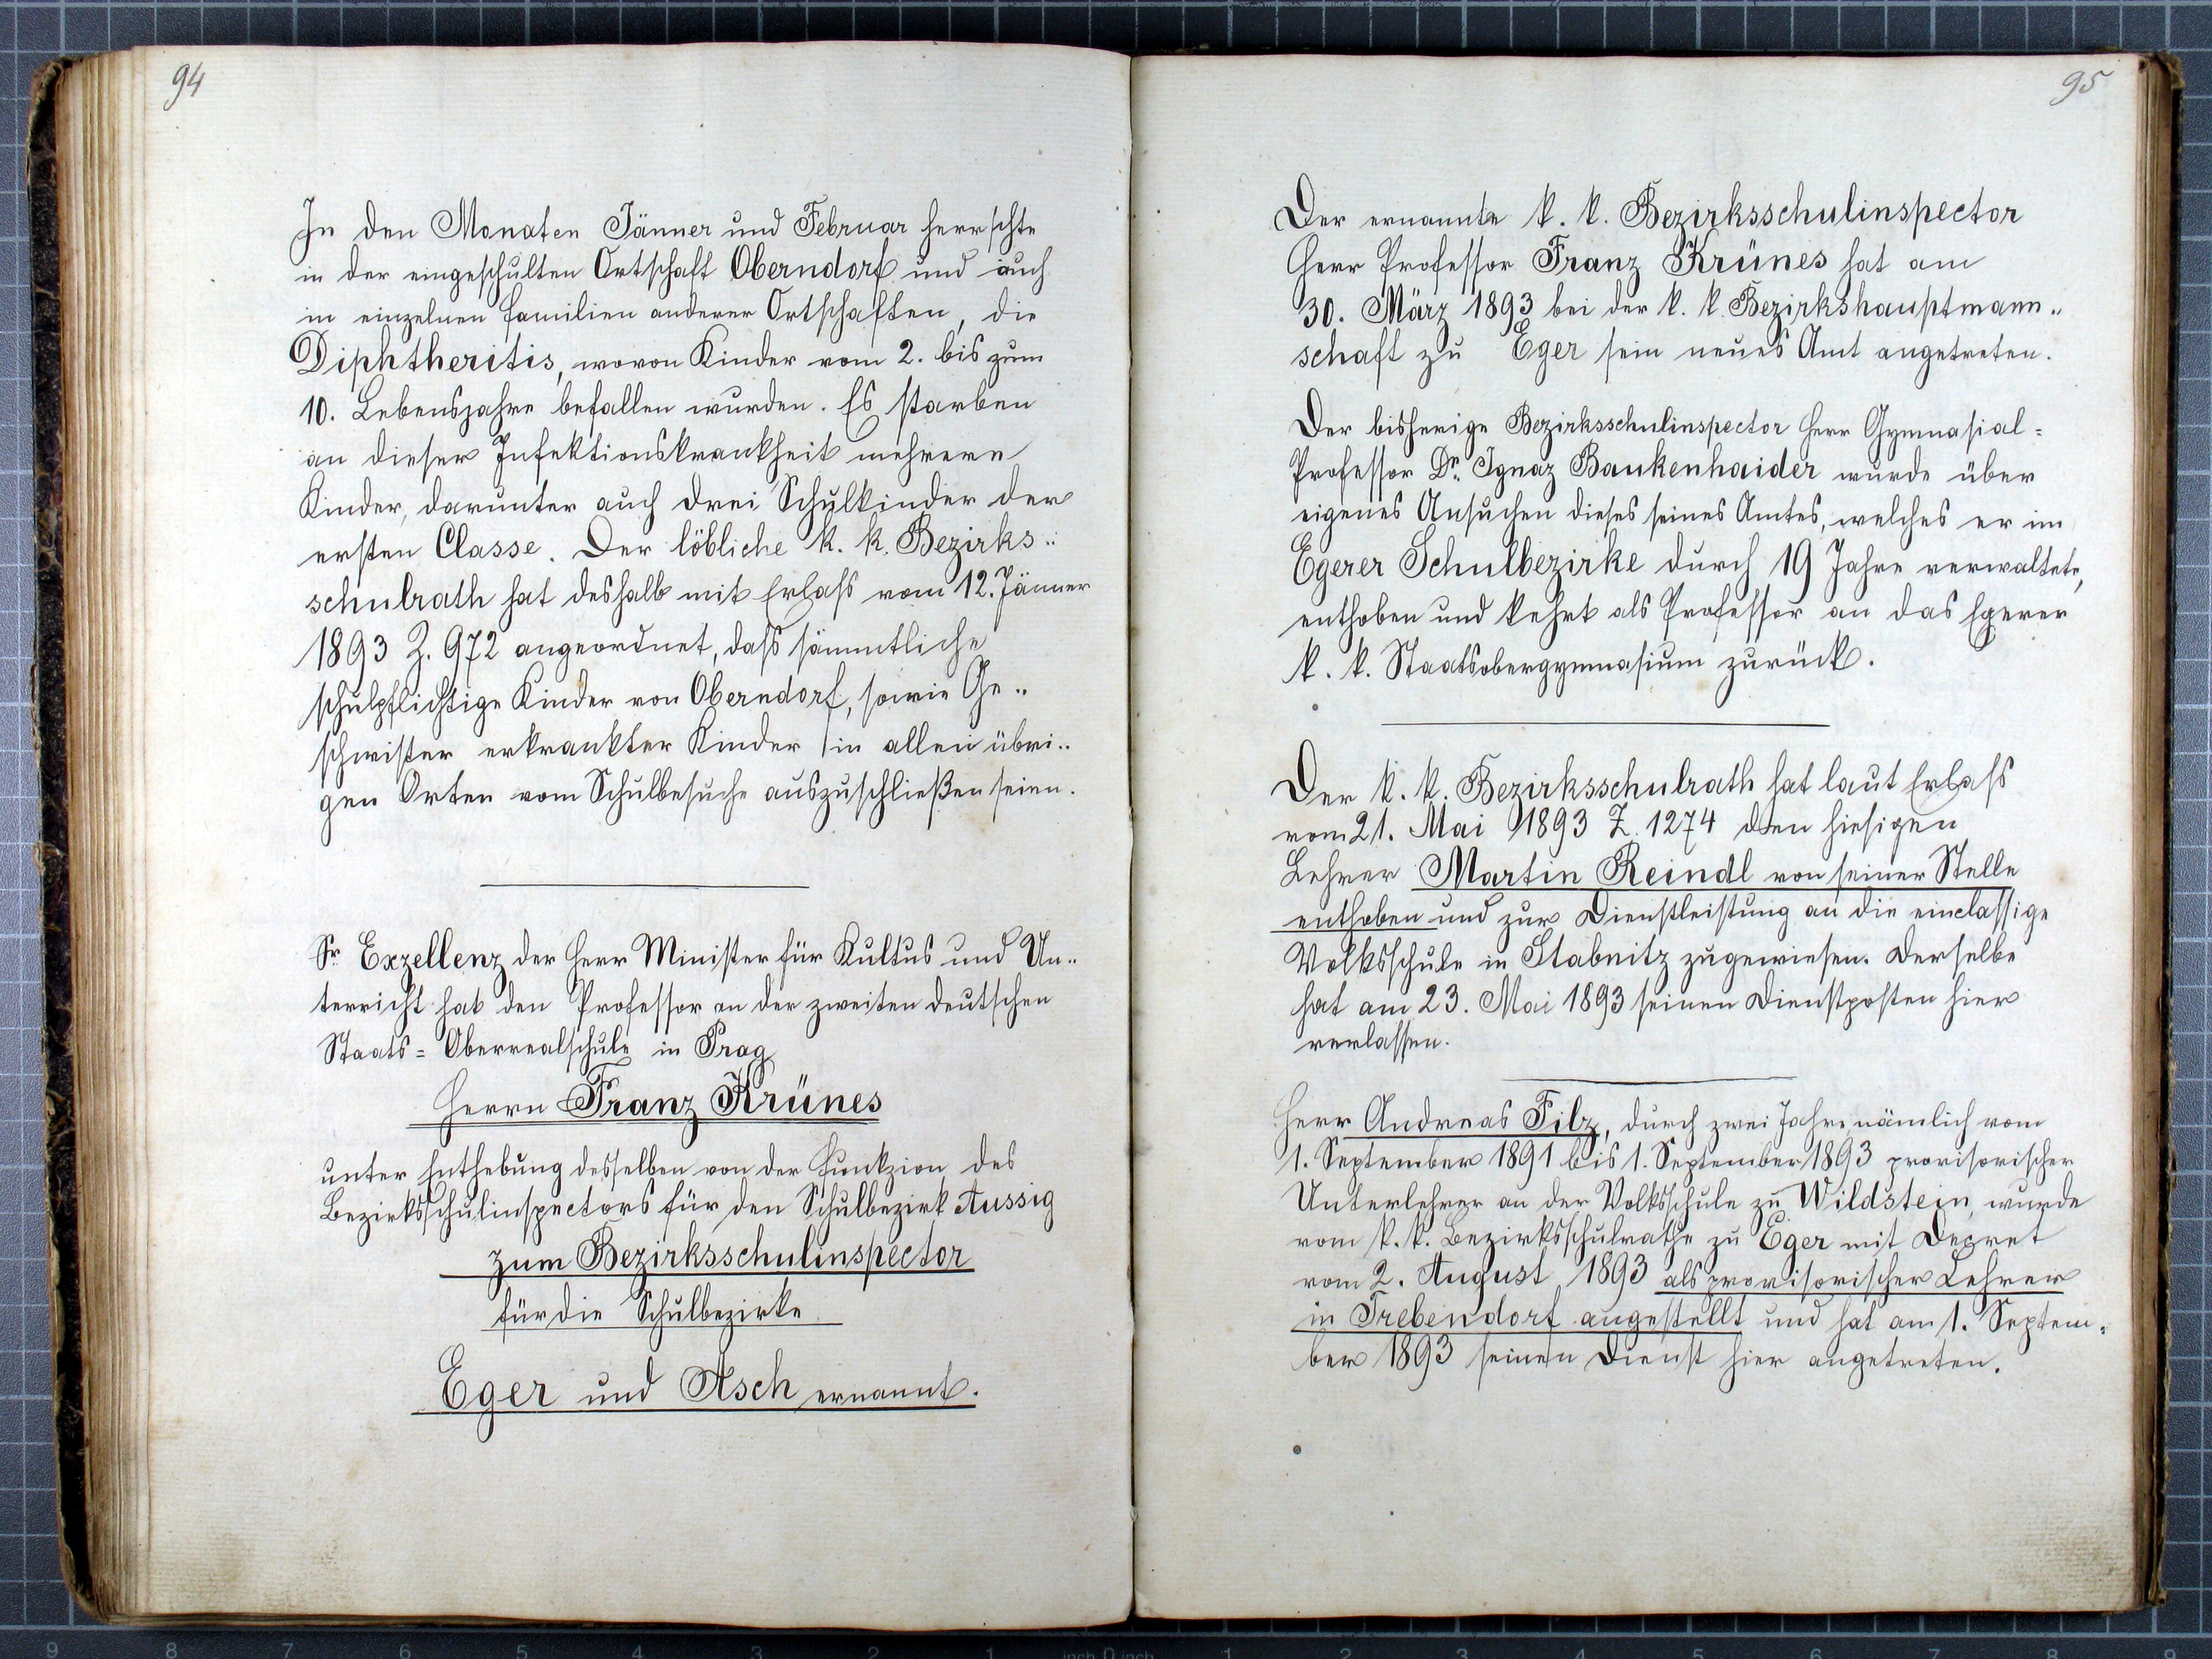 94
In den Monaten Jänner und Februar herrschte
in der eingeschulten Ortschaft Oberndorf und auch
in einzelnen Familien anderer Ortschaften, die
Diphtheritis, wovon Kinder vom 2. bis zum
10. Lebensjahre befallen wurden. Es starben
an dieser Infektionskrankheit mehrere
Kinder, darunter auch drei Schulkinder der
ersten Classe. Der löbliche k. k. Bezirks-
schulrath hat deshalb mit Erlaß vom 12. Jänner
1893 Z. 972 angeordnet, daß sämmtliche
schulpflichtige Kinder von Oberndorf, sowie Ge-
schwister erkrankter Kinder in allen übri-
gen Orten vom Schulbesuche auszuschließen seien.
Sr. Exzellenz der Herr Minister für Kultus und Un-
terricht hat den Professor an der zweiten deutschen
Staats-Oberrealschule in Prag
Herrn Franz Krünes
unter Enthebung desselben von der Funkzion des
Bezirksschulinspectors für den Schulbezirk Aussig
zum Bezirksschulinspector
für die Schulbezirke
Eger und Asch ernannt.
95
Der ernannte k. k. Bezirksschulinspector
Herr Professor Franz Krünes hat am
30. März 1893 bei der k. k. Bezirkshauptmann-
schaft zu Eger sein neues Amt angetreten.
Der bisherige Bezirksschulinspector Herr Gymnasial-
Professor Dr. Ignaz Baukenhaider wurde über
eigenes Ansuchen dieses seines Amtes, welches er im
Egerer Schulbezirke durch 19 Jahre verwaltete,
enthoben und kehrt als Professor an das Egerer
k. k. Staatsobergymnasium zurück.
Der k. k. Bezirksschulrath hat laut Erlaß
vom 21. Mai 1893 Z. 1274 den hiesigen
Lehrer Martin Reindl von seiner Stelle
enthoben und zur Dienstleistung an die einclassige
Volksschule in Stabnitz zugewiesen. Derselbe
hat am 23. Mai 1893 seinen Dienstposten hier
verlassen.
Herr Andreas Filz, durch zwei Jahre nämlich vom
1. September 1891 bis 1. September 1893 provisorischer
Unterlehrer an der Volksschule zu Wildstein, wurde
vom k. k. Bezirksschulrathe zu Eger mit Decret
vom 2. August 1893 als provisorischer Lehrer
in Trebendorf angestellt und hat am 1. Septem-
ber 1893 seinen Dienst hier angetreten.
9 8 7 6 5 4 3 2 1 inch 0 inch 1 2 3 4 5 6 7 8 9